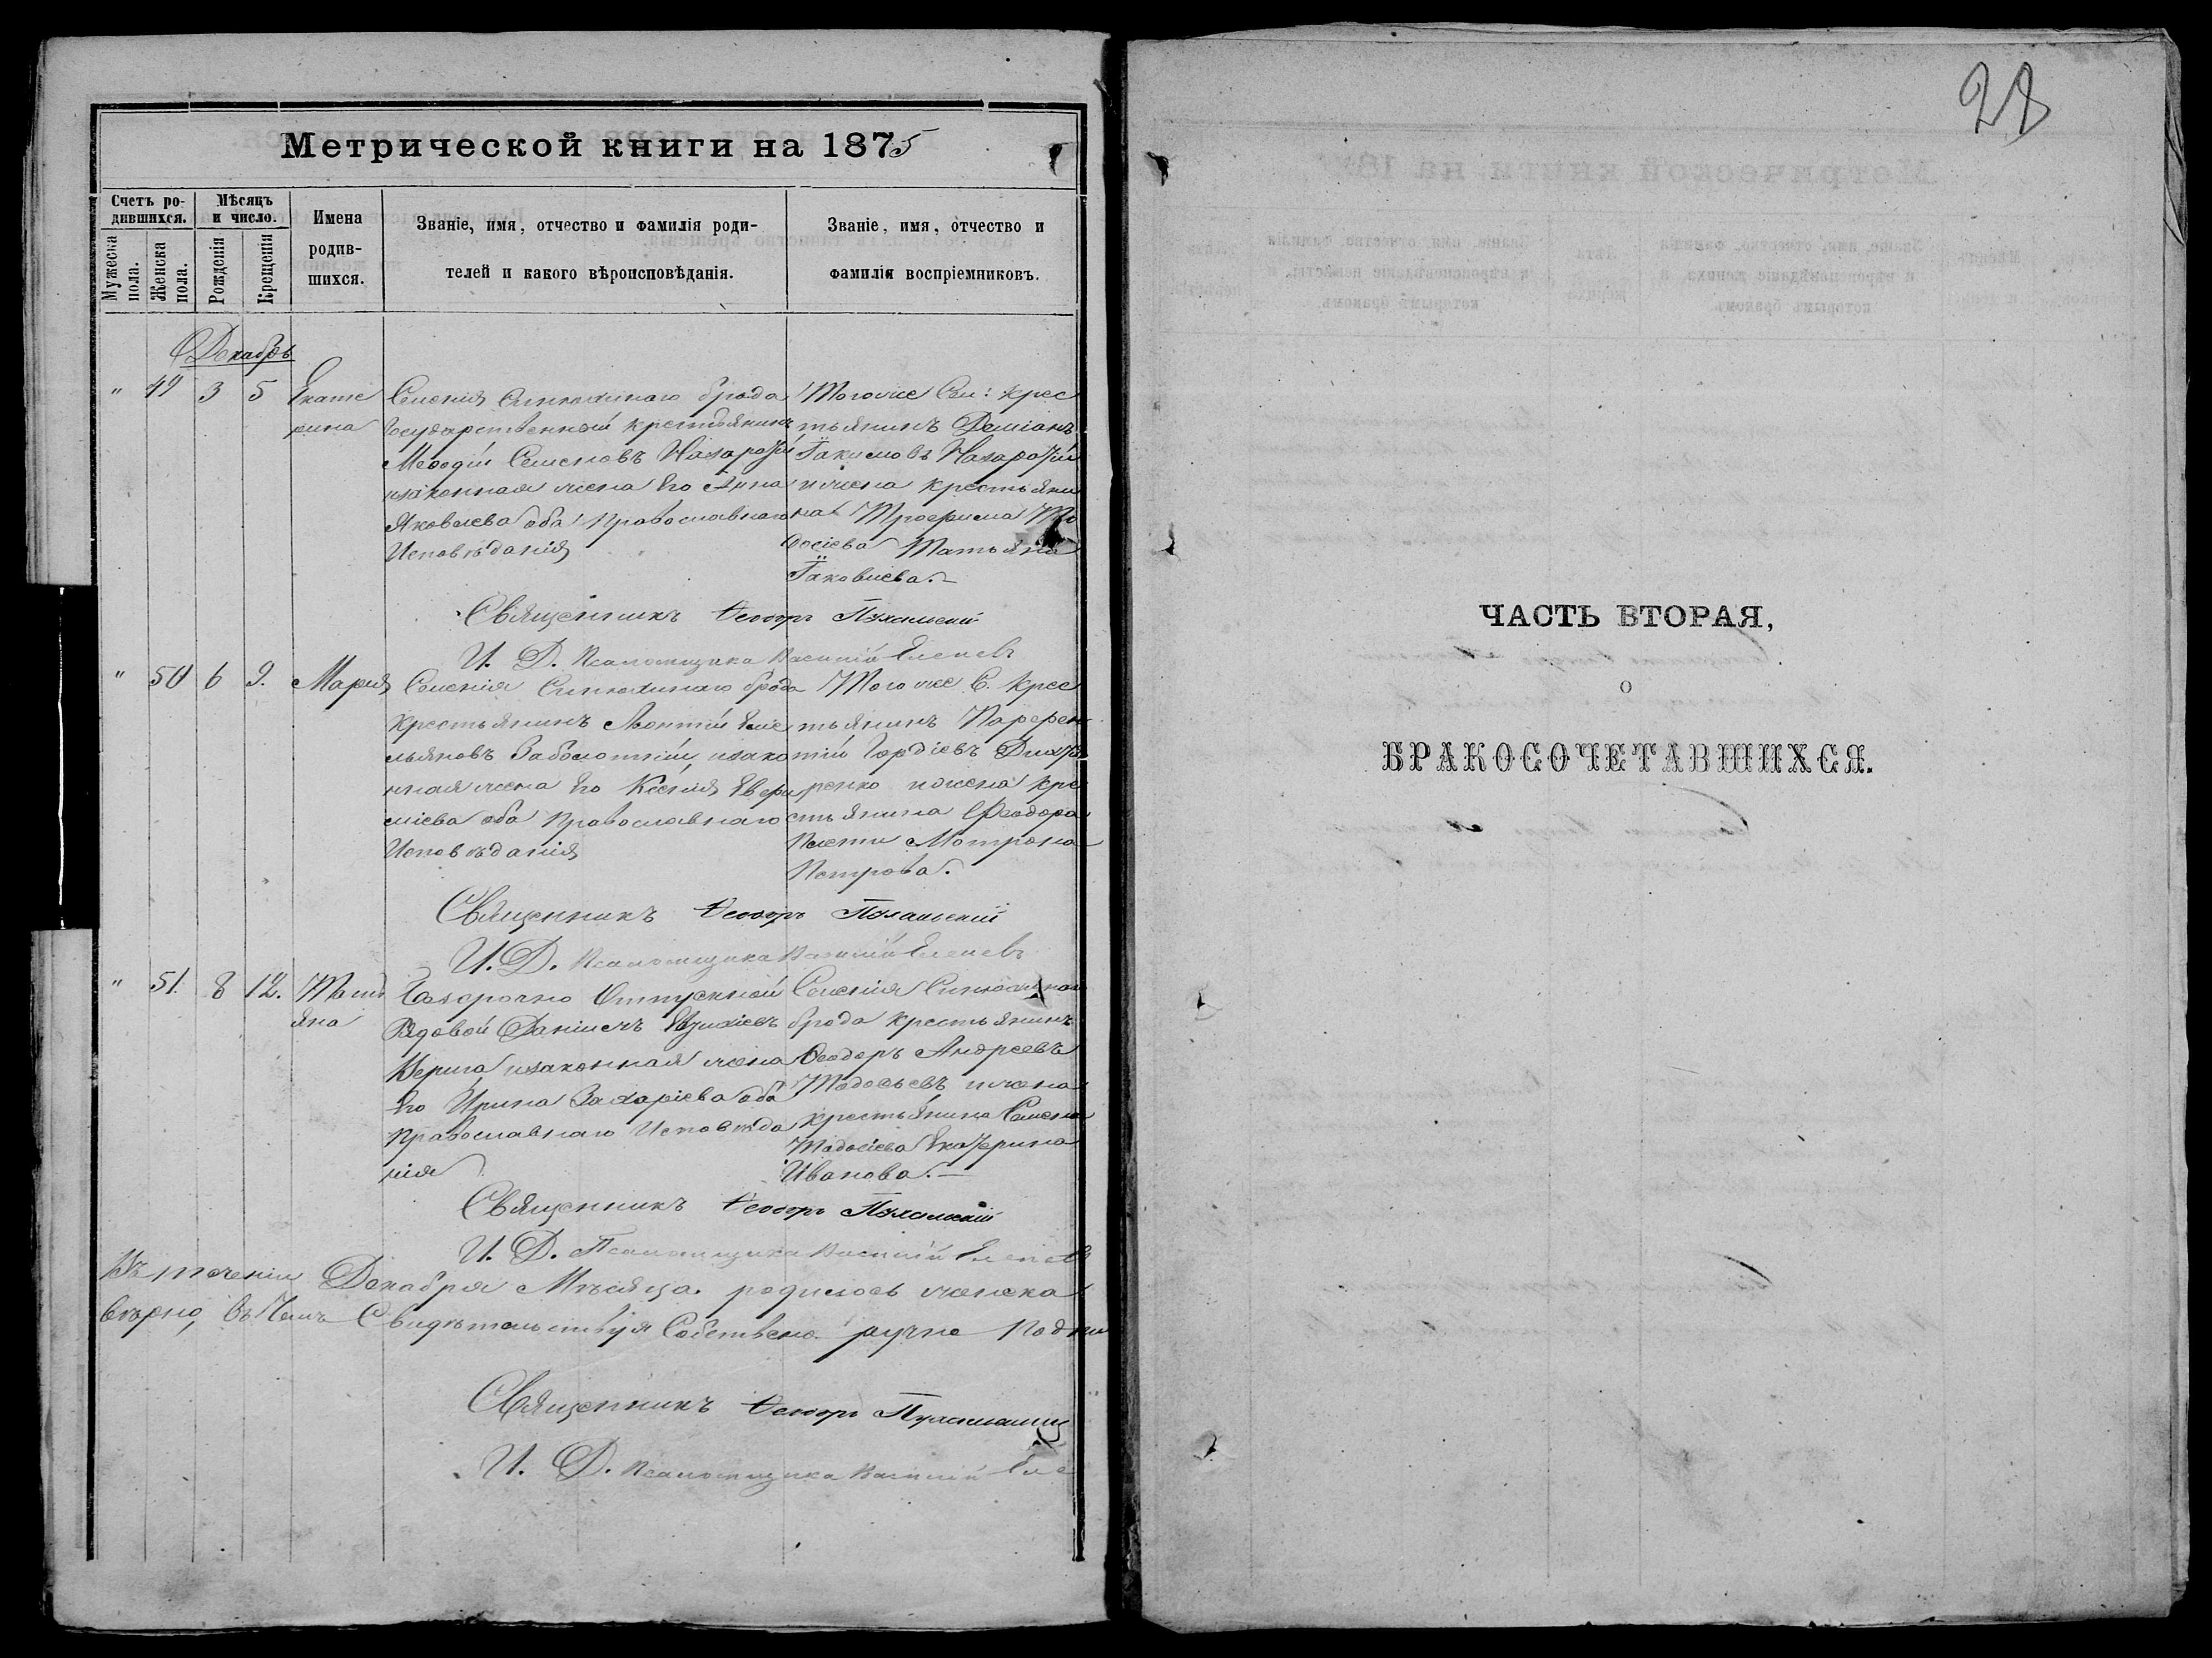 Метрической книги на 1875
Счетъ родившихся.
Мужеска пола.
Женска пола.
Мѣсяцъ и число.
Рожденія
Крещенія
Имена родившихся.
Званіе, имя, отчество и фамилія роди-
телей и какого вѣроисповѣданія.
Званіе, имя, отчество и
фамилія воспріемниковъ.
Декабрь
" 49 3 5 Екате
рина
Селенія Синюхинаго брода
Государственный крестьянинъ
Меѳодій Семеновъ
изаконная жена его Анна
Яковлева оба Православнаго
Исповѣданія
Тогоже Сел: крес
тьянинъ Деміанъ
Іакимовъ
ижена крестьяни
на Трофима То
досіева Татьяна
Іаковлева.
Священникъ Ѳеодоръ
И. Д. Псаломщика Василій
" 50 6 9. Марія
Селенія Синюхинаго брода
крестьянинъ Леонтій Еме
льяновъ Заболотній, изако
нная жена его Ксенія
оба Православнаго
Исповѣданія
Тогоже С. крес
тьянинъ Парфен
тій Гордіевъ
ренко ижена кре
стьянина Феодора
Мотрона
Петрова.
Священникъ Ѳеодоръ
И. Д. Псаломщика Василій
" 51. 8 12. Тать
яна
Отпускной
Рядовой Даніилъ
изаконная жена
его Ирина Захаріева оба
Православнаго Исповѣда
нія
Селенія Синюхинаго
брода крестьянинъ
Ѳеодоръ Андреевъ
Тодосьевъ, ижена
крестьянина Семена
Тодосіева Екатерина
Иванова.
Священникъ Ѳеодоръ
И. Д. Псаломщика Василій
Въ теченіи Декабря Мѣсяца родилось
вѣрно, въ чемъ Свидѣтельствуя Собствено ручно
Священникъ Ѳеодоръ
И. Д. Псаломщика Василій
28
ЧАСТЬ ВТОРАЯ,
О
БРАКОСОЧЕТАВШИХСЯ.